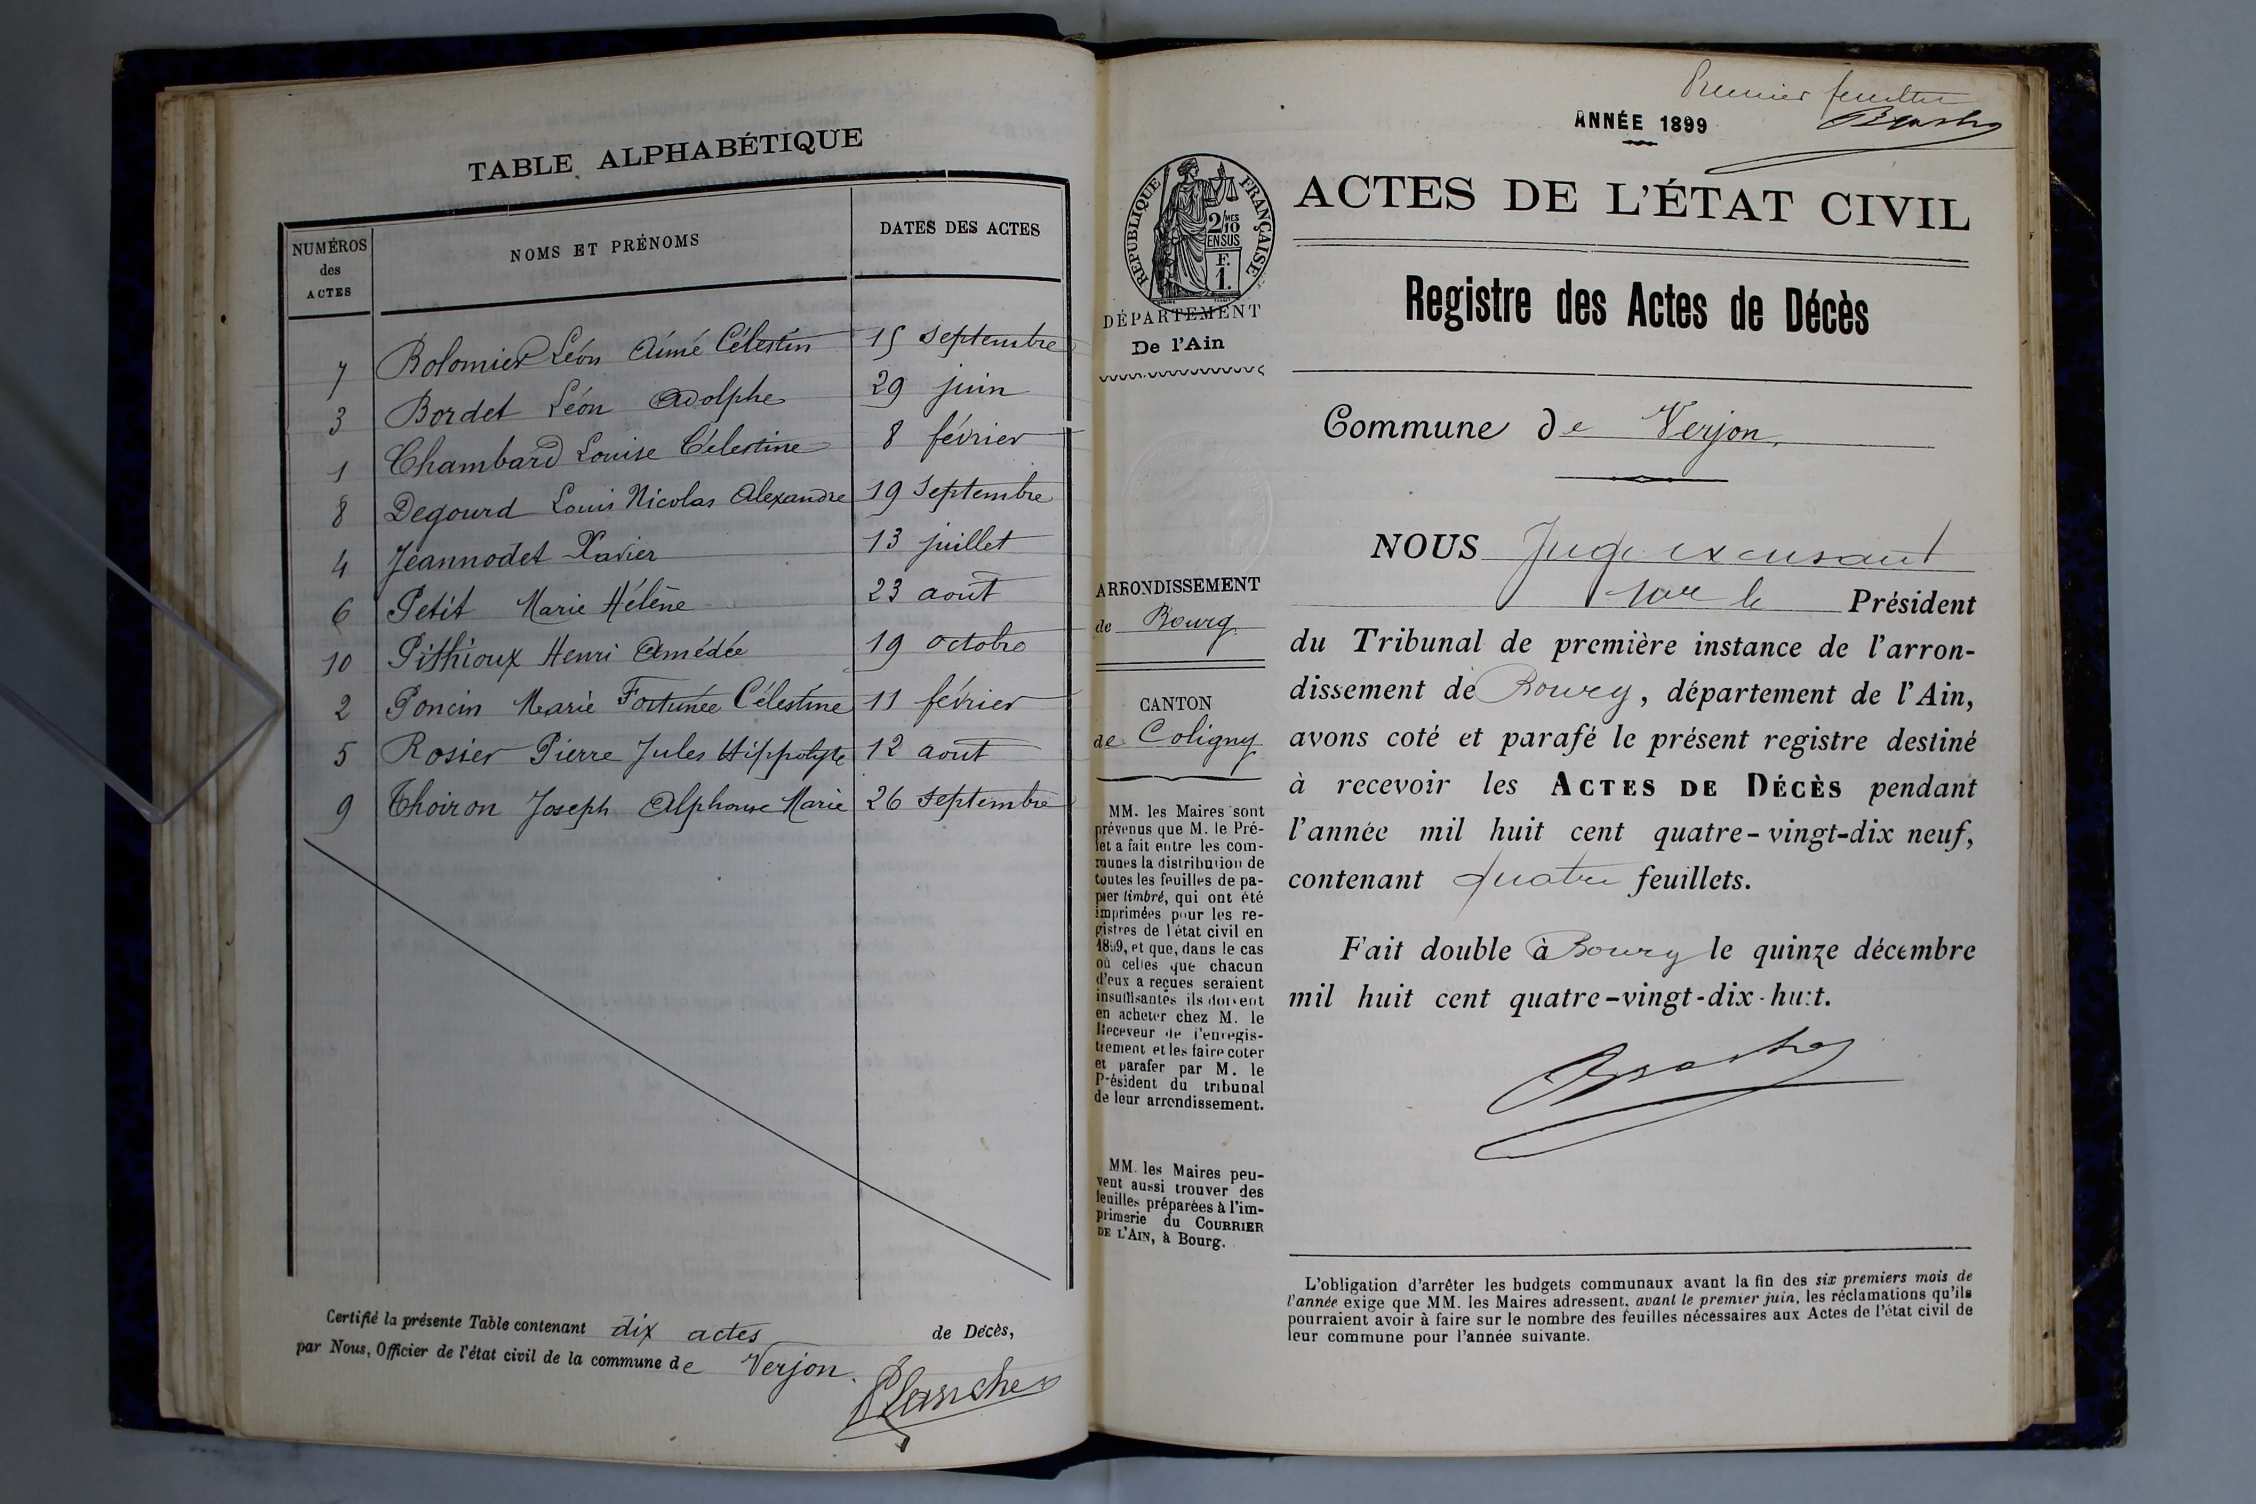 TABLE ALPHABÉTIQUE
NUMÉROS des ACTES
NOMS ET PRÉNOMS
DATES DES ACTES
7 Bolomier Léon Aimé Célestin 15 septembre
3 Bordet Léon Adolphe 29 juin
1 Chambard Louise Célestine 8 février
8 Degourd Louis Nicolas Alexandre 19 septembre
4 Jeannodet Xavier 13 juillet
6 Petit Marie Hélène 23 août
10 Pithioux Henri Amédée 19 octobre
2 Poncin Marie Fortunée Célestine 11 février
5 Rosier Pierre Jules Hippolyte 12 août
9 Thoiron Joseph Alphonse Marie 26 septembre
Certifié la présente Table contenant dix actes de Décès,
par Nous, Officier de l'état civil de la commune de Verjon.
Premier feuillet
ANNÉE 1899
RÉPUBLIQUE FRANÇAISE
2/10
MES
EN SUS
F.
1.
DÉPARTEMENT
De l'Ain
ARRONDISSEMENT
de Bourg
CANTON
de Coligny
MM. les Maires sont
prévenus que M. le Pré-
fet a fait entre les com-
munes la distribution de
toutes les feuilles de pa-
pier timbré, qui ont été
imprimées pour les re-
gistres de l'état civil en
1899, et que, dans le cas
où celles que chacun
d'eux a reçues seraient
insuffisantes ils doivent
en acheter chez M. le
Receveur de l'enregis-
trement et les faire coter
et parafer par M. le
Président du tribunal
de leur arrondissement.
MM. les Maires peu-
vent aussi trouver des
feuilles préparées à l'im-
primerie du COURRIER
DE L'AIN, à Bourg.
ACTES DE L'ÉTAT CIVIL
Registre des Actes de Décès
Commune de Verjon,
NOUS Juge excusant
le Président
du Tribunal de première instance de l'arron-
dissement de Bourg, département de l'Ain,
avons coté et parafé le présent registre destiné
à recevoir les ACTES DE DÉCÈS pendant
l'année mil huit cent quatre-vingt-dix neuf,
contenant quatre feuillets.
Fait double à Bourg le quinze décembre
mil huit cent quatre-vingt-dix-huit.
L'obligation d'arrêter les budgets communaux avant la fin des six premiers mois de
l'année exige que MM. les Maires adressent, avant le premier juin, les réclamations qu'ils
pourraient avoir à faire sur le nombre des feuilles nécessaires aux Actes de l'état civil de
leur commune pour l'année suivante.